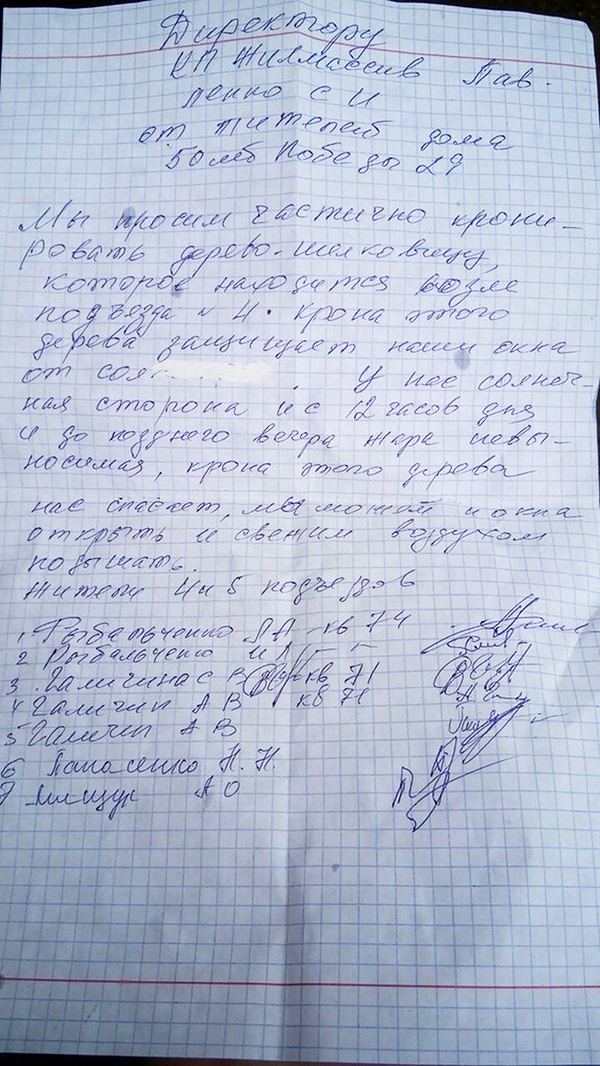 Директору
КП Жилмассив Пав-
ленко С И
от жителей дома
50 лет Победы 29
Мы просим частично крони-
ровать дерево-шелковицу,
которое находится возле
подъезда № 4. крона этого
дерева защищает наши окна
от У нас солнеч-
ная сторона и с 12 часов дня
и до позднего вечера жара невы-
носимая, крона этого дерева
нас спасает, мы можем и окна
открыть и свежим воздухом
подышать.
Жители 4 и 5 подъездов
1. Рыбальченко Л А - кв 74
2 Рыбальченко И Л - " -
3. Галичина С В кв 71
4 Галичин А В кв 71
5 Галичин А В
6 Панасенко Н. Н.
7 А О